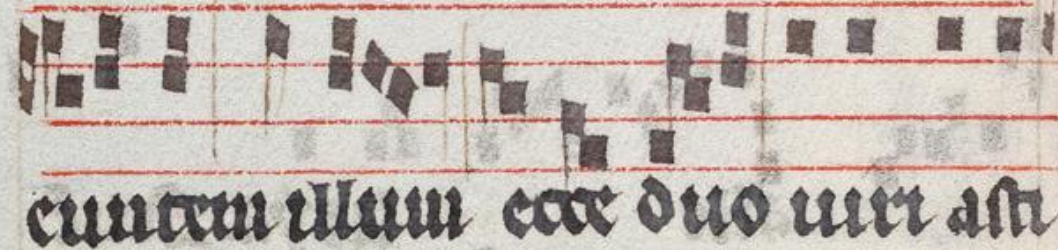 euntem illum ecce duo uiri asti